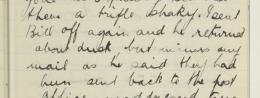 them a trifle shaky. Sent
Bill off again and he returned
about dusk, but minus any
mail as he said they had
been sent back to the post